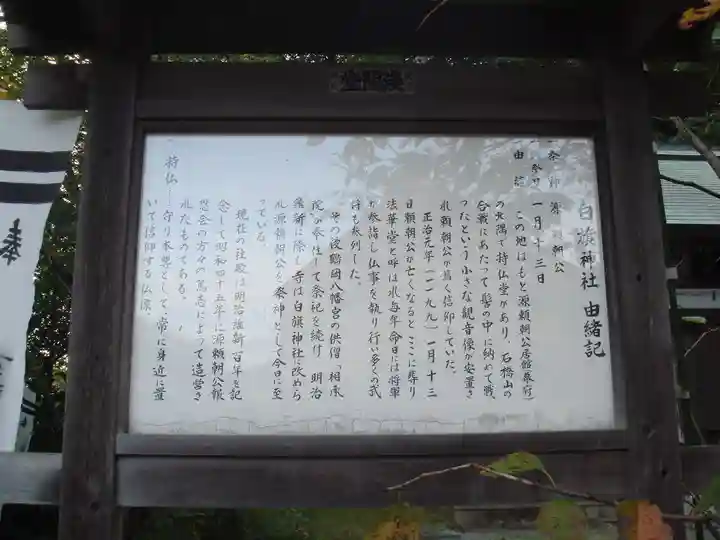 白旗神社 由緒記
一 祭神 源 頼朝公
一 例祭 一月十三日
一 由緒
この地はもと源頼朝公居館(幕府)
の北隅で持仏堂があり、石橋山の
合戦にあたって髻の中に納めて戦
ったという小さな観音像が安置さ
れ頼朝公が篤く信仰していた。
正治元年(一一九九)一月十三
日頼朝公が亡くなるとここに葬り
法華堂と呼ばれ毎年命日には将軍
が参詣し仏事を執り行い多くの武
将も参列した。
その後鶴岡八幡宮の供僧「相承
院」が奉仕して祭祀を続け 明治
維新に際し寺は白旗神社と改めら
れ源頼朝公を祭神として今日に至
っている。
現在の社殿は明治維新百年を記
念して昭和四十五年に源頼朝公報
恩会の方々の篤志によって造営さ
れたものである。
持仏――守り本尊として、常に身近に置
いて信仰する仏像。
奉